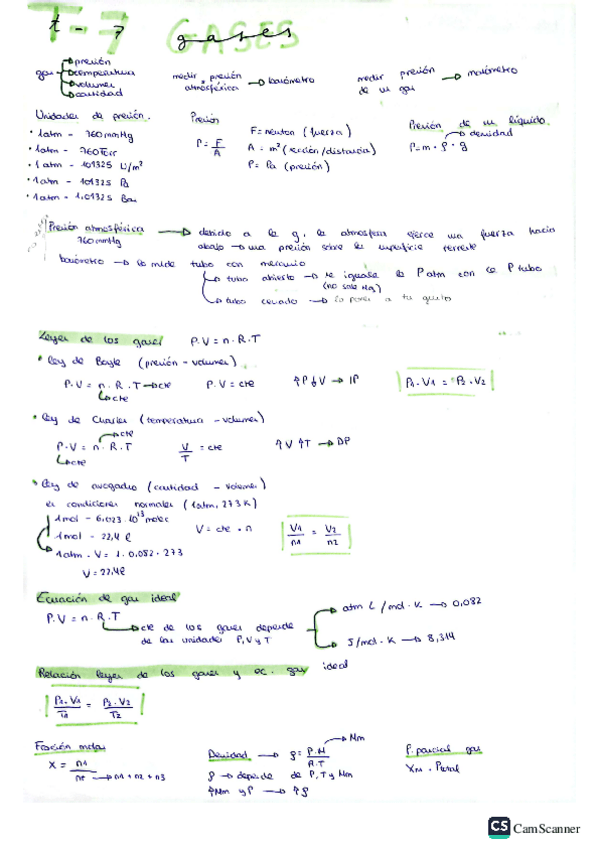 T-7 GASES
t - 7 gases
gas → presión
→ temperatura
→ volumen
→ cantidad
medir presión atmosférica → barómetro
medir presión de un gas → manómetro
Unidades de presión.
· 1atm - 760mmHg
· 1atm - 760Torr
· 1atm - 101325 N/m²
· 1atm - 101325 Pa
· 1atm - 1,01325 Bar
Presión
P = F/A
F = newton (fuerza)
A = m² (sección/distancia)
P = Pa (presión)
Presión de un líquido
→ densidad
P = m · ρ · g
Presión atmosférica → debido a la g, la atmosfera ejerce una fuerza hacia
760mmHg
abajo → una presión sobre la superficie terrestre
barómetro → lo mide tubo con mercurio
→ tubo abierto → se iguala la P atm con la P tubo
(no sale Hg)
→ tubo cerrado → lo pones a tu gusto
Leyes de los gases P.V = n.R.T
· ley de Boyle (presión - volumen)
P.V = n.R.T → cte P.V = cte ↑P ↓V → IP P1.V1 = P2.V2
→ cte
· ley de Charles (temperatura - volumen)
→ cte
P.V = n.R.T V/T = cte ↑V ↑T → DP
→ cte
· ley de avogadro (cantidad - volumen)
en condiciones normales (1atm, 273K)
1mol - 6,023.10¹³ molec
1mol - 22,4 l V = cte . n V1/n1 = V2/n2
1atm . V = 1.0,082.273
V = 22,4l
Ecuación de gas ideal
P.V = n.R.T
→ cte de los gases depende
de las unidades P, V y T
→ atm L / mol.K → 0,082
→ J/mol.K → 8,314
Relación leyes de los gases y ec. gas ideal
P1.V1/T1 = P2.V2/T2
Fracción molar
X = n1/nT → n1 + n2 + n3
Densidad → ρ = P.M/R.T → Mm
ρ → depende de P, T y Mm
↑Mm y P → ↑ρ
P. parcial gas
XM . Ptotal
CS CamScanner